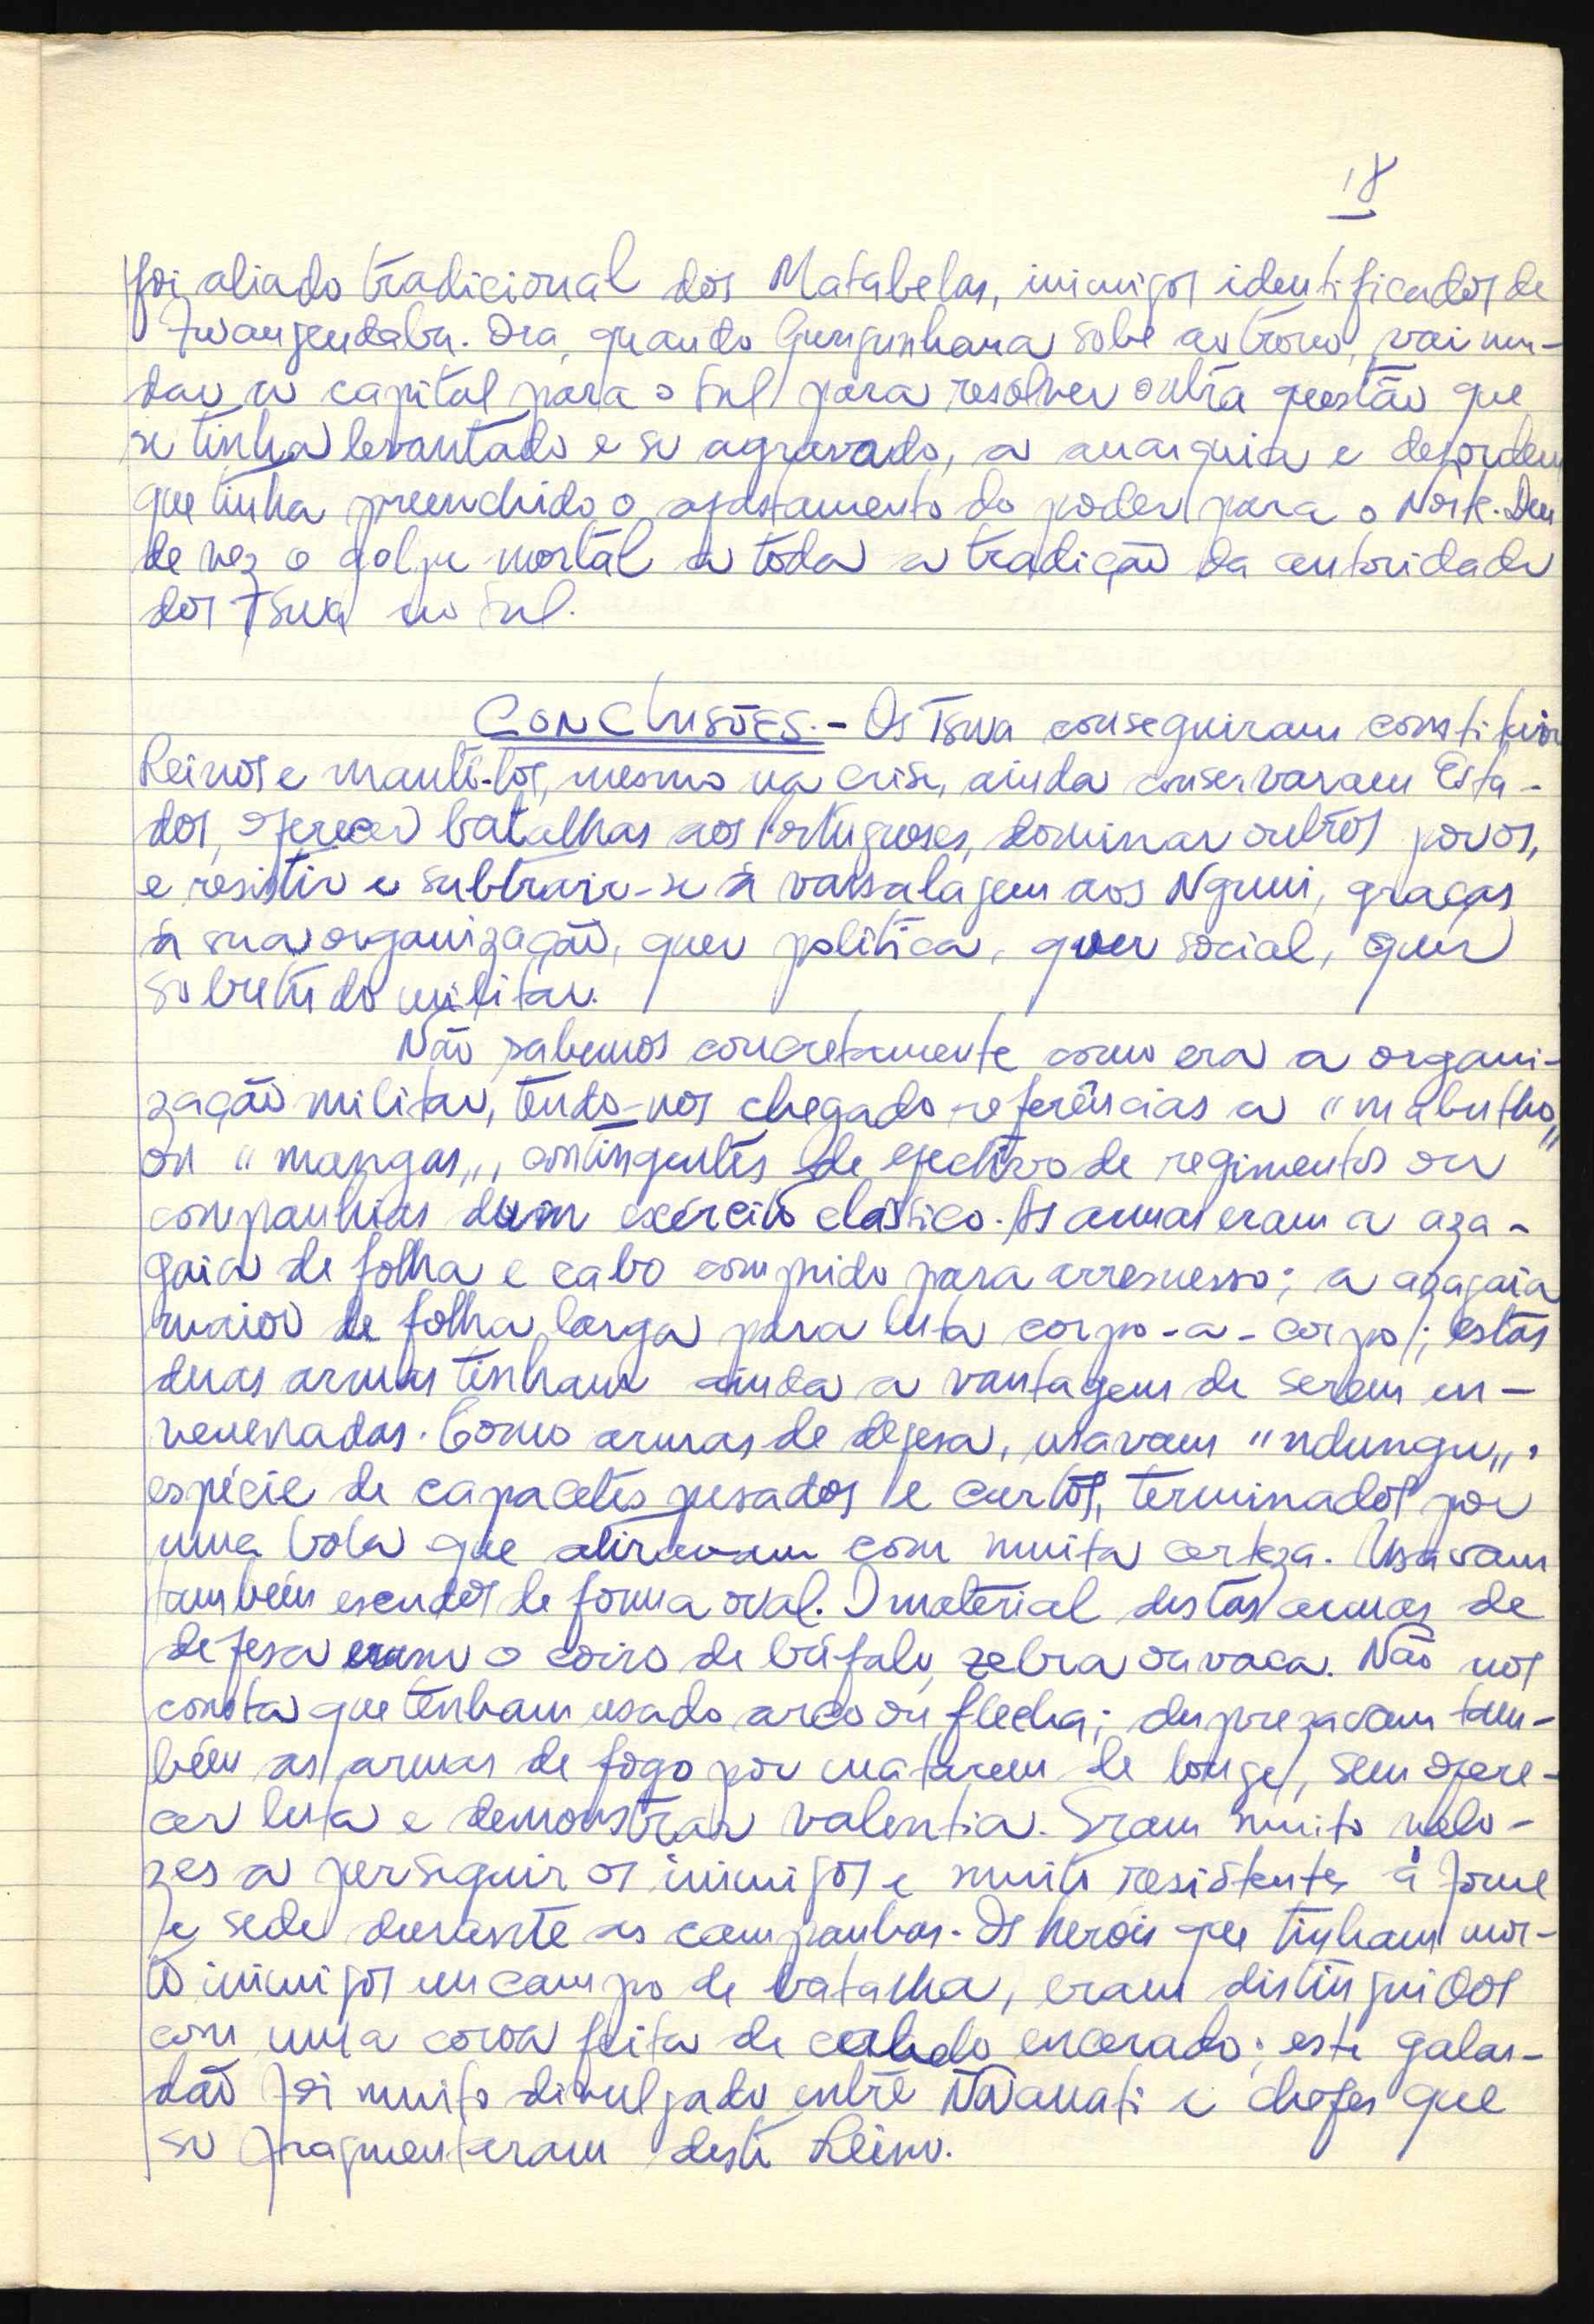 18
foi aliado tradicional dos Matabelas, inimigos identificados de
Zwangendaba. Ora, quando Gungunhana sobe ao trono, vai mu-
dar a capital para o Sul para resolver outra questão que
se tinha levantado e se agravado, a anarquia e desordem
que tinha preenchido o afastamento do poder para o Norte. Deu
de vez o golpe mortal a toda a tradição da autoridade
dos Tswa no Sul.
CONCLUSÕES.- Os Tswa conseguiram constituir
Reinos e mantê-los, mesmo na crise, ainda conservaram Esta-
dos, oferecer batalhas aos Portugueses, dominar outros povos,
e resistir e subtrair-se à vassalagem aos Nguni, graças
à sua organização, quer política, quer social, quer
sobretudo militar.
Não sabemos concretamente como era a organi-
zação militar, tendo-nos chegado referências a "mabutho"
ou "mangas", contingentes de efectivo de regimentos ou
companhias dum exército clássico. As armas eram a aza-
gaia de folha e cabo comprido para arremesso; a azagaia
maior de folha larga para luta corpo-a-corpo; estas
duas armas tinham ainda a vantagem de serem en-
venenadas. Como armas de defesa, usavam "ndungu",
espécie de capacetes pesados e curtos, terminados por
uma bola que atiravam com muita certeza. Usavam
também escudos de forma oval. O material destas armas de
defesa eram o coiro de búfalo, zebra ou vaca. Não nos
consta que tenham usado arco ou flecha; desprezavam tam-
bém as armas de fogo por matarem de longe, sem ofere-
cer luta e demonstrar valentia. Eram muito velo-
zes a perseguir os inimigos e muito resistentes à fome
e sede durante as campanhas. Os heróis que tinham mor-
to inimigos em campo de batalha, eram distinguidos
com uma coroa feita de cabedo encerado; este galar-
dão foi muito divulgado entre Nwanati e chefes que
se fragmentaram deste Reino.